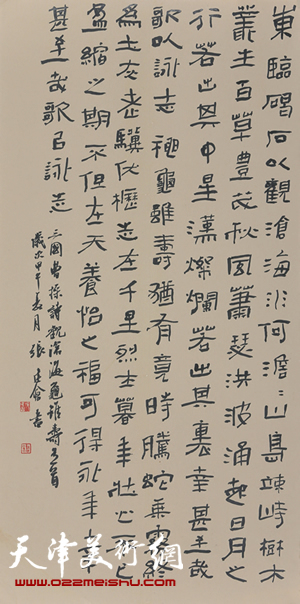 東臨碣石以觀滄海水何澹〻山島竦峙樹木
叢生百草豐茂秋風蕭瑟洪波涌起日月之
行若出其中星漢燦爛若出其裏幸甚至哉
歌以詠志神龜雖壽猶有竟時騰蛇乘霧終
為土灰老驥伏櫪志在千里烈士暮年壯心不已
盈縮之期不但在天養怡之福可得永年幸
甚至哉歌以詠志
三國曹操詩觀滄海龜雖壽二首
歲次甲午春月張書
天津美術網
www.022meishu.com